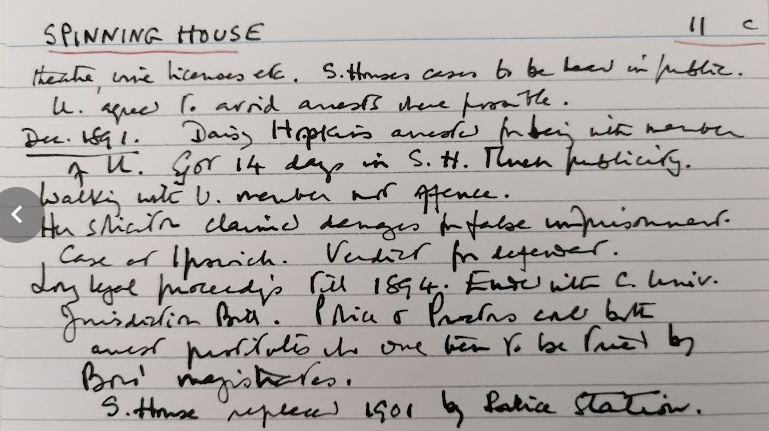 SPINNING HOUSE 11 c
theatre, wine licenses etc. S. Houses cases to be heard in public.
U. agreed to avoid arrests where possible.
Dec. 1891. Daisy Hopkins arrested for being with member
of U. Got 14 days in S. H. Much publicity.
Walking with U. member not offence.
Her solicitor claimed damages for false imprisonment.
Case at Ipswich. Verdict for defender.
Long legal proceedings till 1894. Ended with C. Univ.
Jurisdiction Bill. Police & Proctors could both
arrest prostitutes who were to be tried by
Boro' magistrates.
S. House replaced 1901 by Police Station.